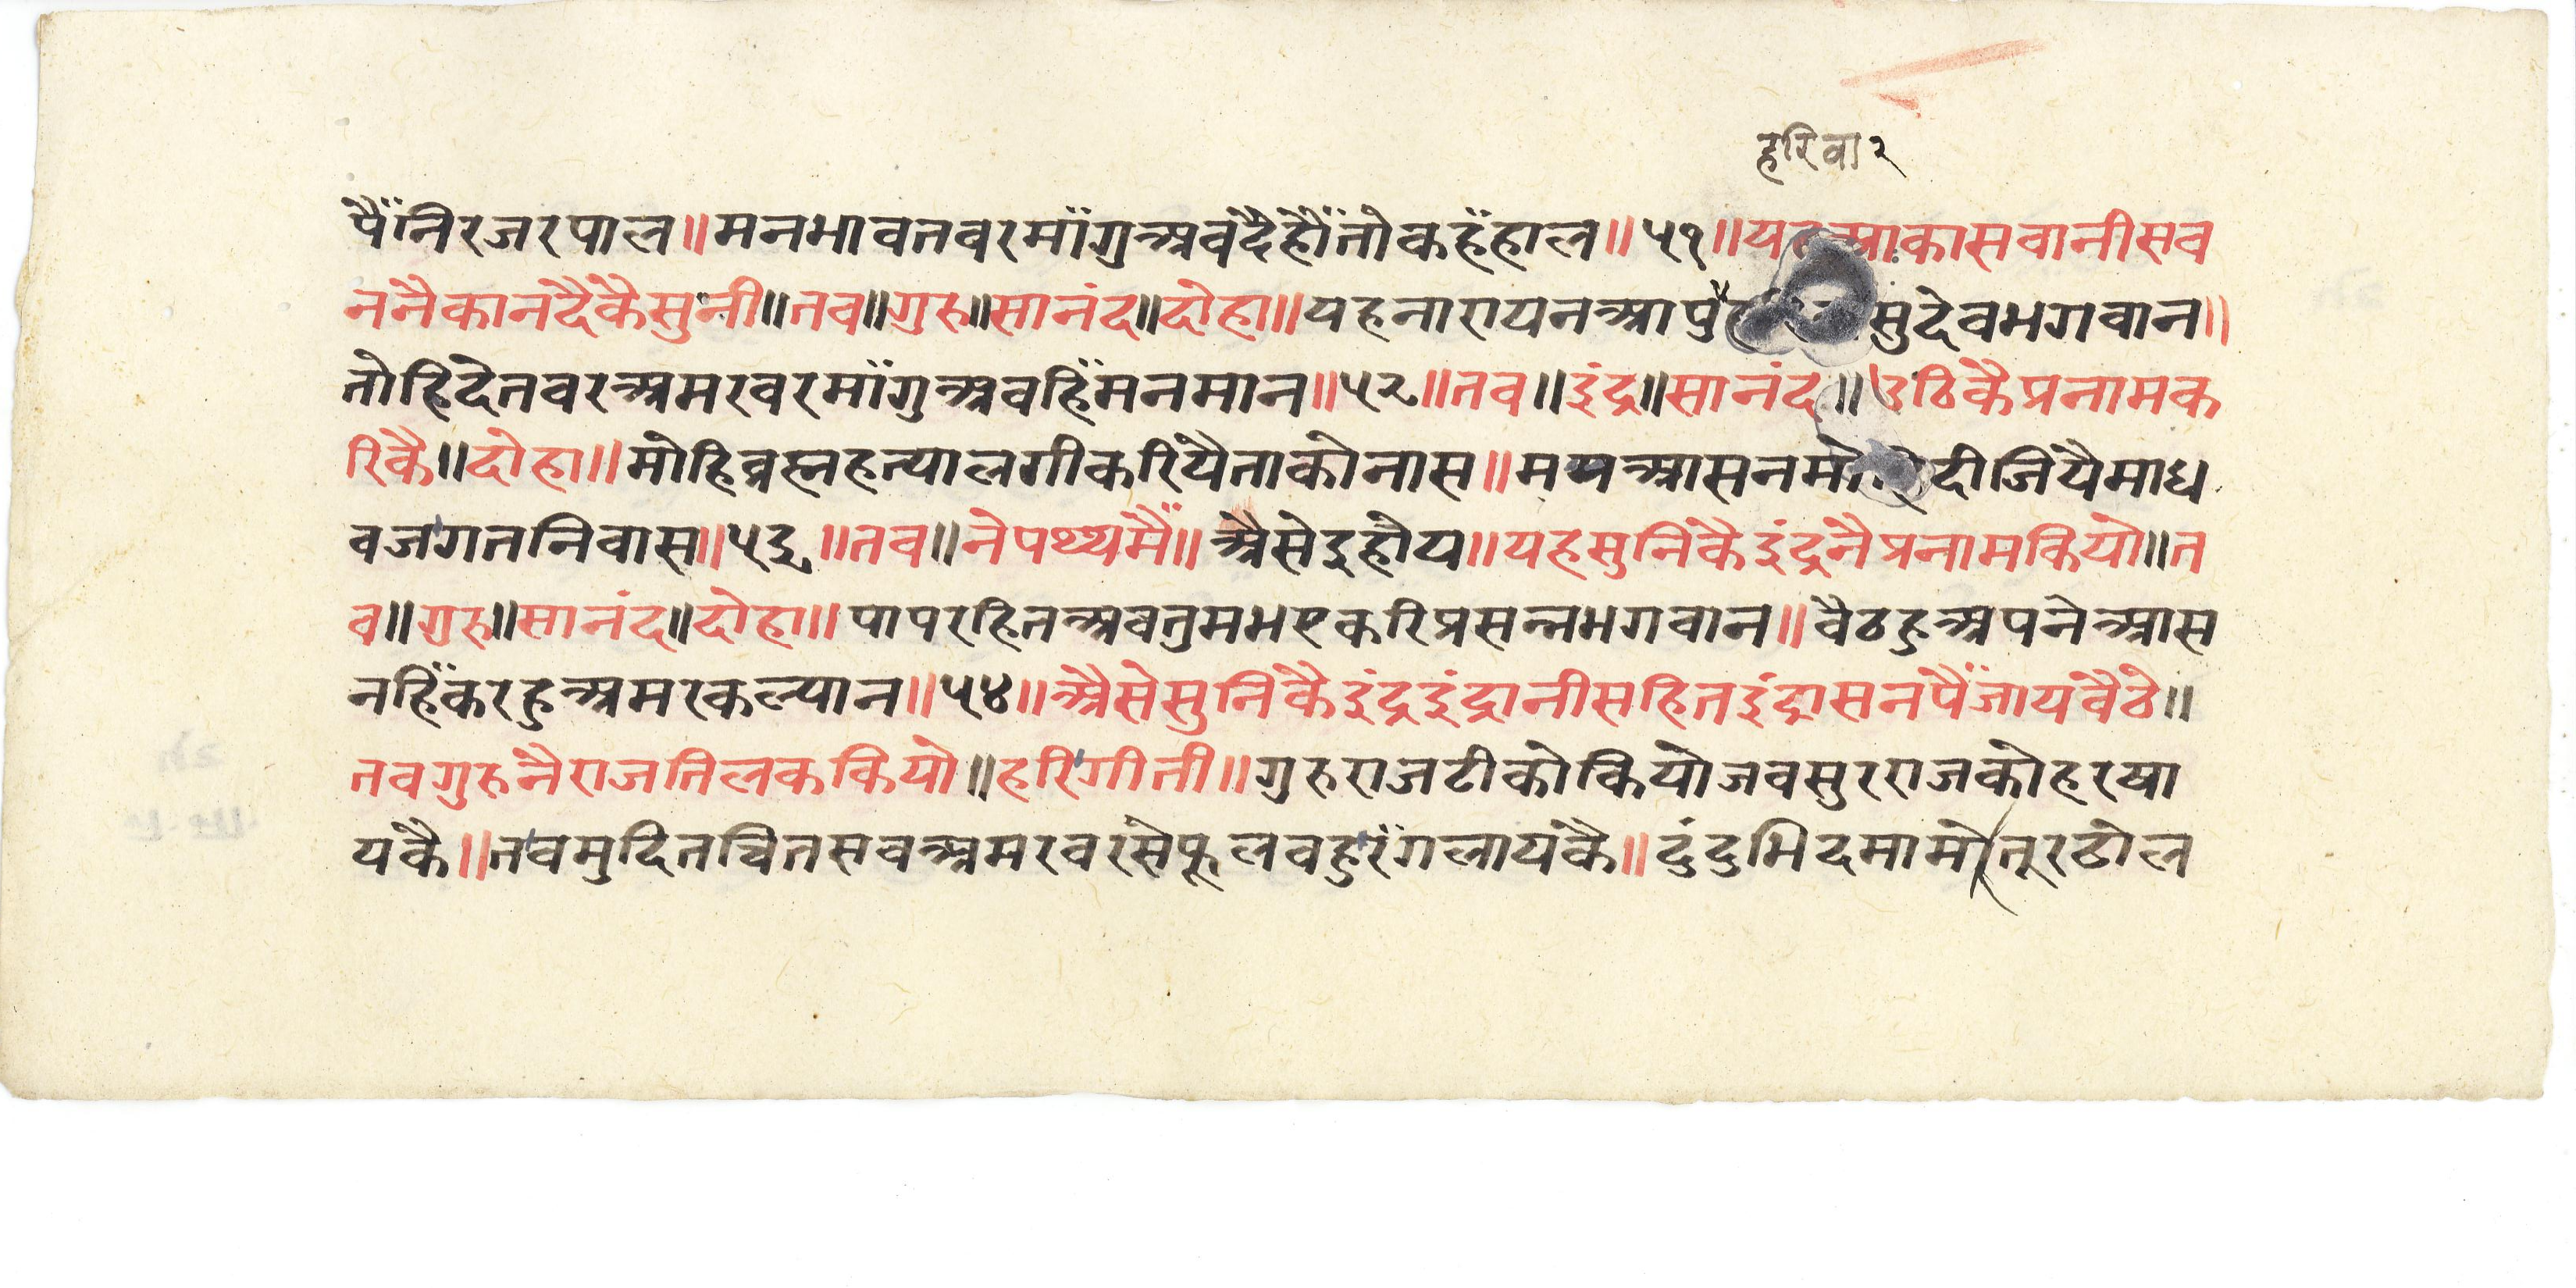 हरिवा२
पैँनिरजरपाल॥मनभावतवरमाँगुअबदैहौँतोकहँहाल॥५१॥यहआकासवानीसव
ननैकानदैकैसुनी॥तव॥गुरु॥सानंद॥दोहा॥यहनारायनआपु सुदेवभगवान॥
तोहिदेतवरअमरवरमाँगुअवहिँमनमान॥५२॥तव॥इंद्र॥सानंद॥उठिकैप्रनामक
रिकै॥दोहा॥मोहिब्रह्महत्यालगीकरियैताकोनास॥ममआसनमो दीजियैमाध
वजगतनिवास॥५३॥तव॥नेपथ्यमैँ॥अैसेइहोय॥यहसुनिकैइंद्रनैप्रनामकियो॥त
व॥गुरु॥सानंद॥दोहा॥पापरहितअवतुमभएकरिप्रसन्नभगवान॥वैठहुअपनेआस
नहिँकरहुअमरकल्यान॥५४॥अैसेसुनिकैइंद्रइंद्रानीसहितइंद्रासनपैँजायवैठे॥
तवगुरुनैराजतिलककियो॥हरिगीती॥गुरुराजटीकोकियोजवसुरराजकोहरषा
यकै॥तवमुदितचितसवअमरवरसेफूलवहुरँगलायकै॥दुंदुभिदमामोतूरढोल